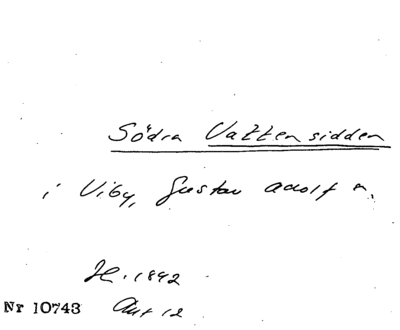 Södra Vattensidden
i Viby, Gustav Adolf s.
H. 1892
Nr 10743 Aut 12